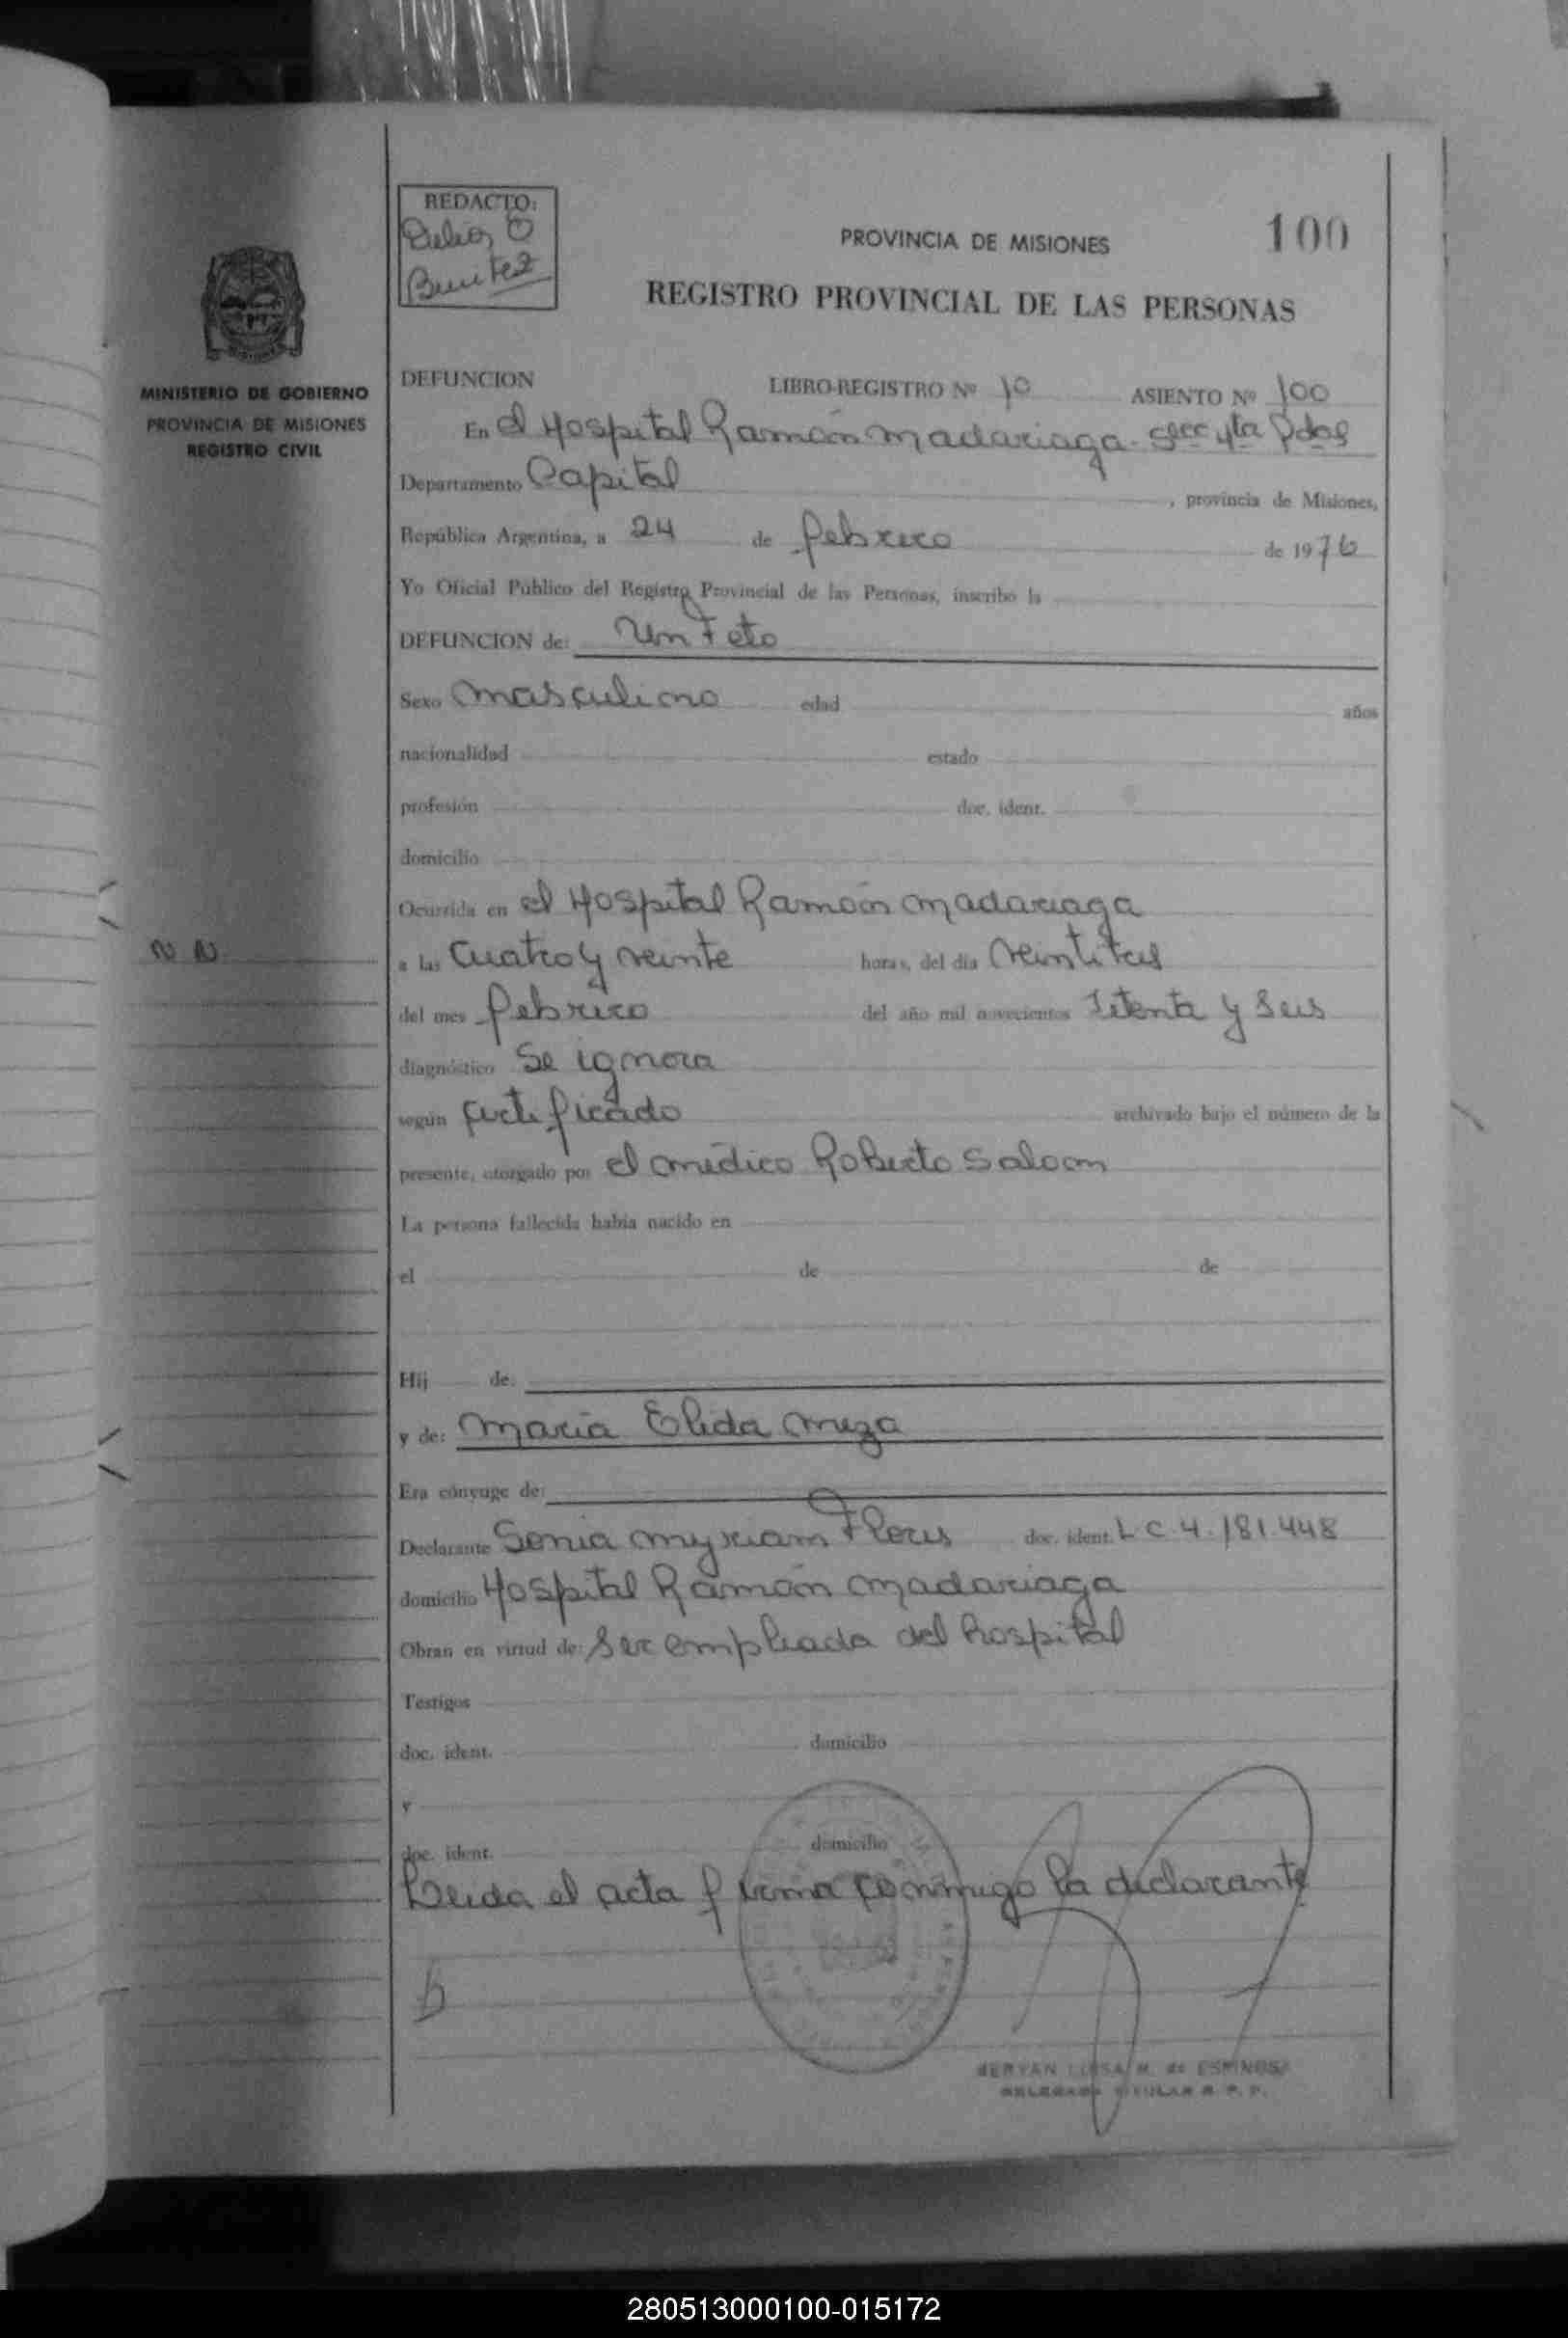 REDACTO:
Benitez
PROVINCIA DE MISIONES
100
REGISTRO PROVINCIAL DE LAS PERSONAS
MINISTERIO DE GOBIERNO
PROVINCIA DE MISIONES
REGISTRO CIVIL
DEFUNCION LIBRO-REGISTRO Nº 10 ASIENTO Nº 100
En el Hospital Ramón Madariaga. Secc 4ta Pdas
Departamento Capital, provincia de Misiones,
República Argentina, a 24 de febrero de 1976
Yo Oficial Público del Registro Provincial de las Personas, inscribo la
DEFUNCION de: Un Feto
Sexo masculino edad años
nacionalidad estado
profesión doc. ident.
domicilio
Ocurrida en el Hospital Ramón Madariaga
N N
a las Cuatro y veinte horas, del día veintitres
del mes febrero del año mil novecientos Setenta y Seis
diagnóstico Se ignora
según certificado archivado bajo el número de la
presente, otorgado por el médico Roberto Saloom
La persona fallecida había nacido en
el de de
Hij de:
y de: María Elida Meza
Era cónyuge de:
Declarante Sonia Myriam Flores doc. ident. L C. 4.181.448
domicilio Hospital Ramón Madariaga
Obran en virtud de: Ser empleada del hospital
Testigos
doc. ident. domicilio
y
doc. ident. domicilio
Leida el acta firma conmigo la declarante
LUISA M. de ESPINOSA
TITULAR R. P. P.
280513000100-015172